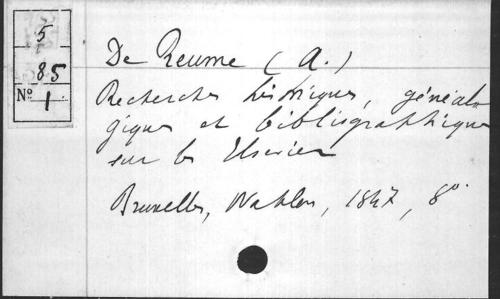 5
85
Nº 1
De Reume (A.)
Recherches historiques, généalo
giques et bibliographiques
sur les Elsevier
Bruxelles, Wahlen, 1847, 8º.